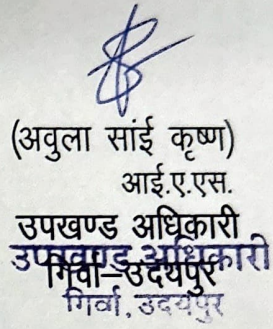 (अवुला सांई कृष्ण)
आई.ए.एस.
उपखण्ड अधिकारी
उपखण्ड अधिकारी
गिर्वा–उदयपुर
गिर्वा, उदयपुर